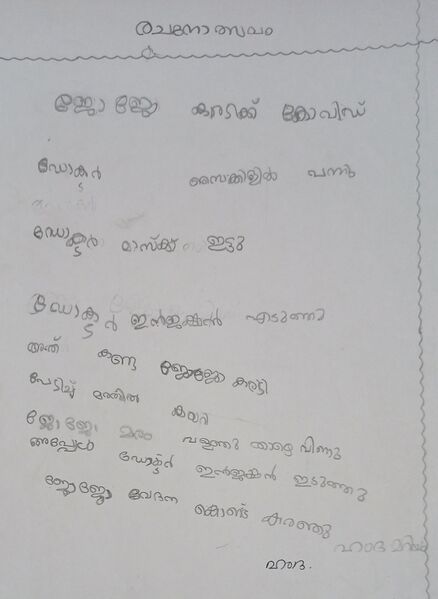 രചനോത്സവം
ജോ ജോ കരടിക്ക് കോവിഡ്
ഡോക്ടർ സൈക്കിളിൽ വന്നു
ഡോക്ടർ മാസ്ക്ക് ഇട്ടു
ഡോക്ടർ ഇൻജക്ഷൻ എടുന്നു
അത് കണ്ട ജോജോ കരടി
പേടിച്ച് മരത്തിൽ കയറി
ജോജോ മരം വളഞ്ഞു താഴെ വീണു
അപ്പോൾ ഡോക്ടർ ഇൻജക്ഷൻ ഇടുത്തു
ജോജോ വേദന കൊണ്ട് കരഞ്ഞു
ഹംദ മറിയം
ഹംദ.